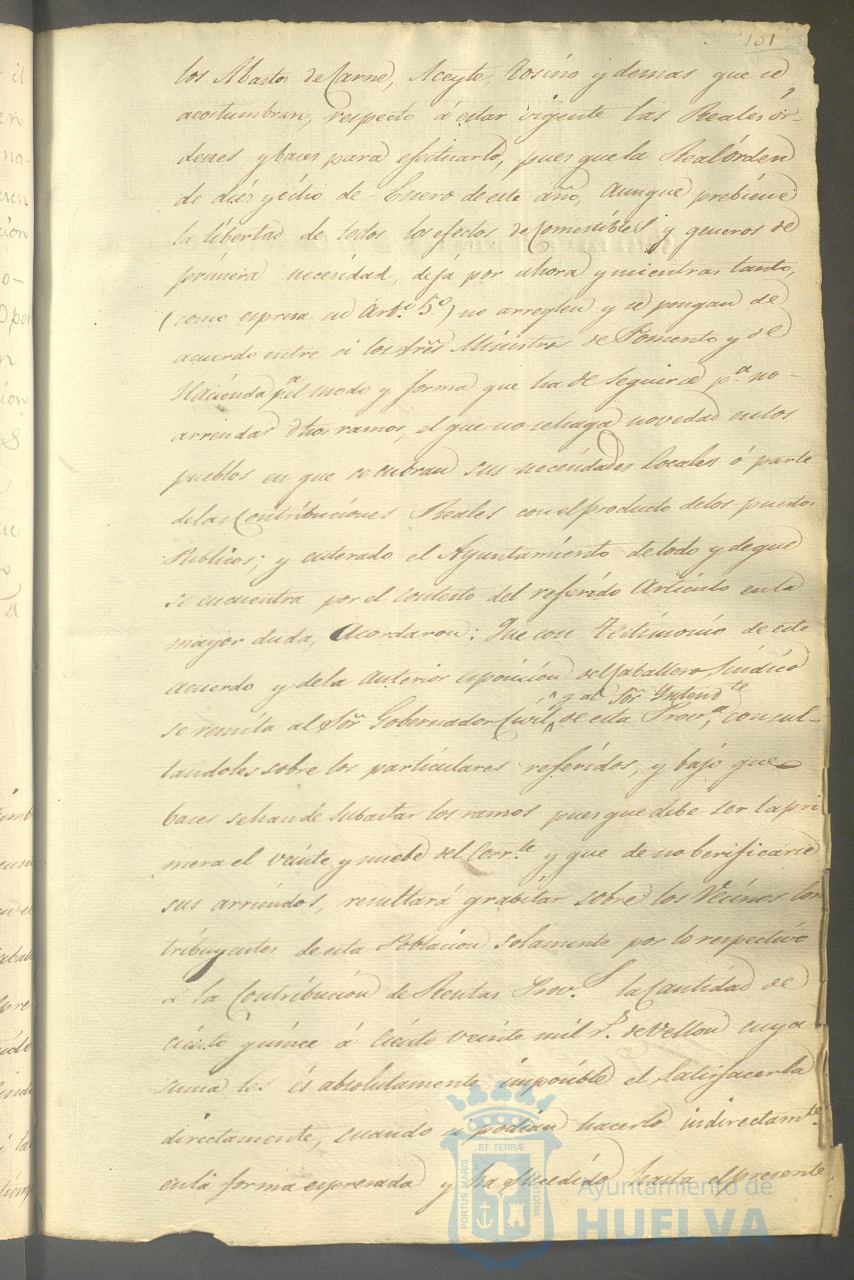 101
los Abastos de Carne, Aceyte, tosino y demas que se
acostumbran, respecto á estar vigente las Reales or-
denes y baces para efectuarlo, pues que la Real órden
de diez y ocho de Enero de este año, aunque prebiene
la libertad de todos los efectos de Comestibles y generos de
primera necesidad, deja por ahora y mientras tanto,
(como espresa su Artº. 5º.) no arreglen y se pongan de
acuerdo entre si los Sres Ministros de Fomento y de
Hacienda pª el modo y forma que ha de seguirse pª no-
arrendar dhos ramos, el que no se haga novedad en los
pueblos en que se cubran sus necesidades locales ó parte
de las Contribuciones Reales con el producto de los puestos
Publicos; y enterado el Ayuntamiento de todo y de que
se encuentra por el contesto del referido Articulo en la
mayor duda, Acordaron: Que con testimonio de este
acuerdo y de la anterior esposicion del Caballero Sindico
y al Sor Intendte
se remita al Sor Gobernador Civil, de esta Provª, consul-
tandoles sobre los particulares referidos, y bajo que
baces se han de subastar los ramos pues que debe ser la pri
mera el veinte y nuebe del Corrte. y que de no berificarse
sus arriendos, resultará grabitar sobre los Vecinos con
tribuyentes de esta Poblacion solamente por lo respectivo
á la Contribución de Rentas Provs. la Cantidad de
ciento quince á ciento veinte mil rs. de vellon cuya
suma les és absolutamente imposible el satisfacerla
directamente, cuando podian hacerlo indirectamte.
en la forma espresada y ha sucedido hasta el presente
PORTUS MARIS ET TERRÆ CUSTODIA
Ayuntamiento de
HUELVA